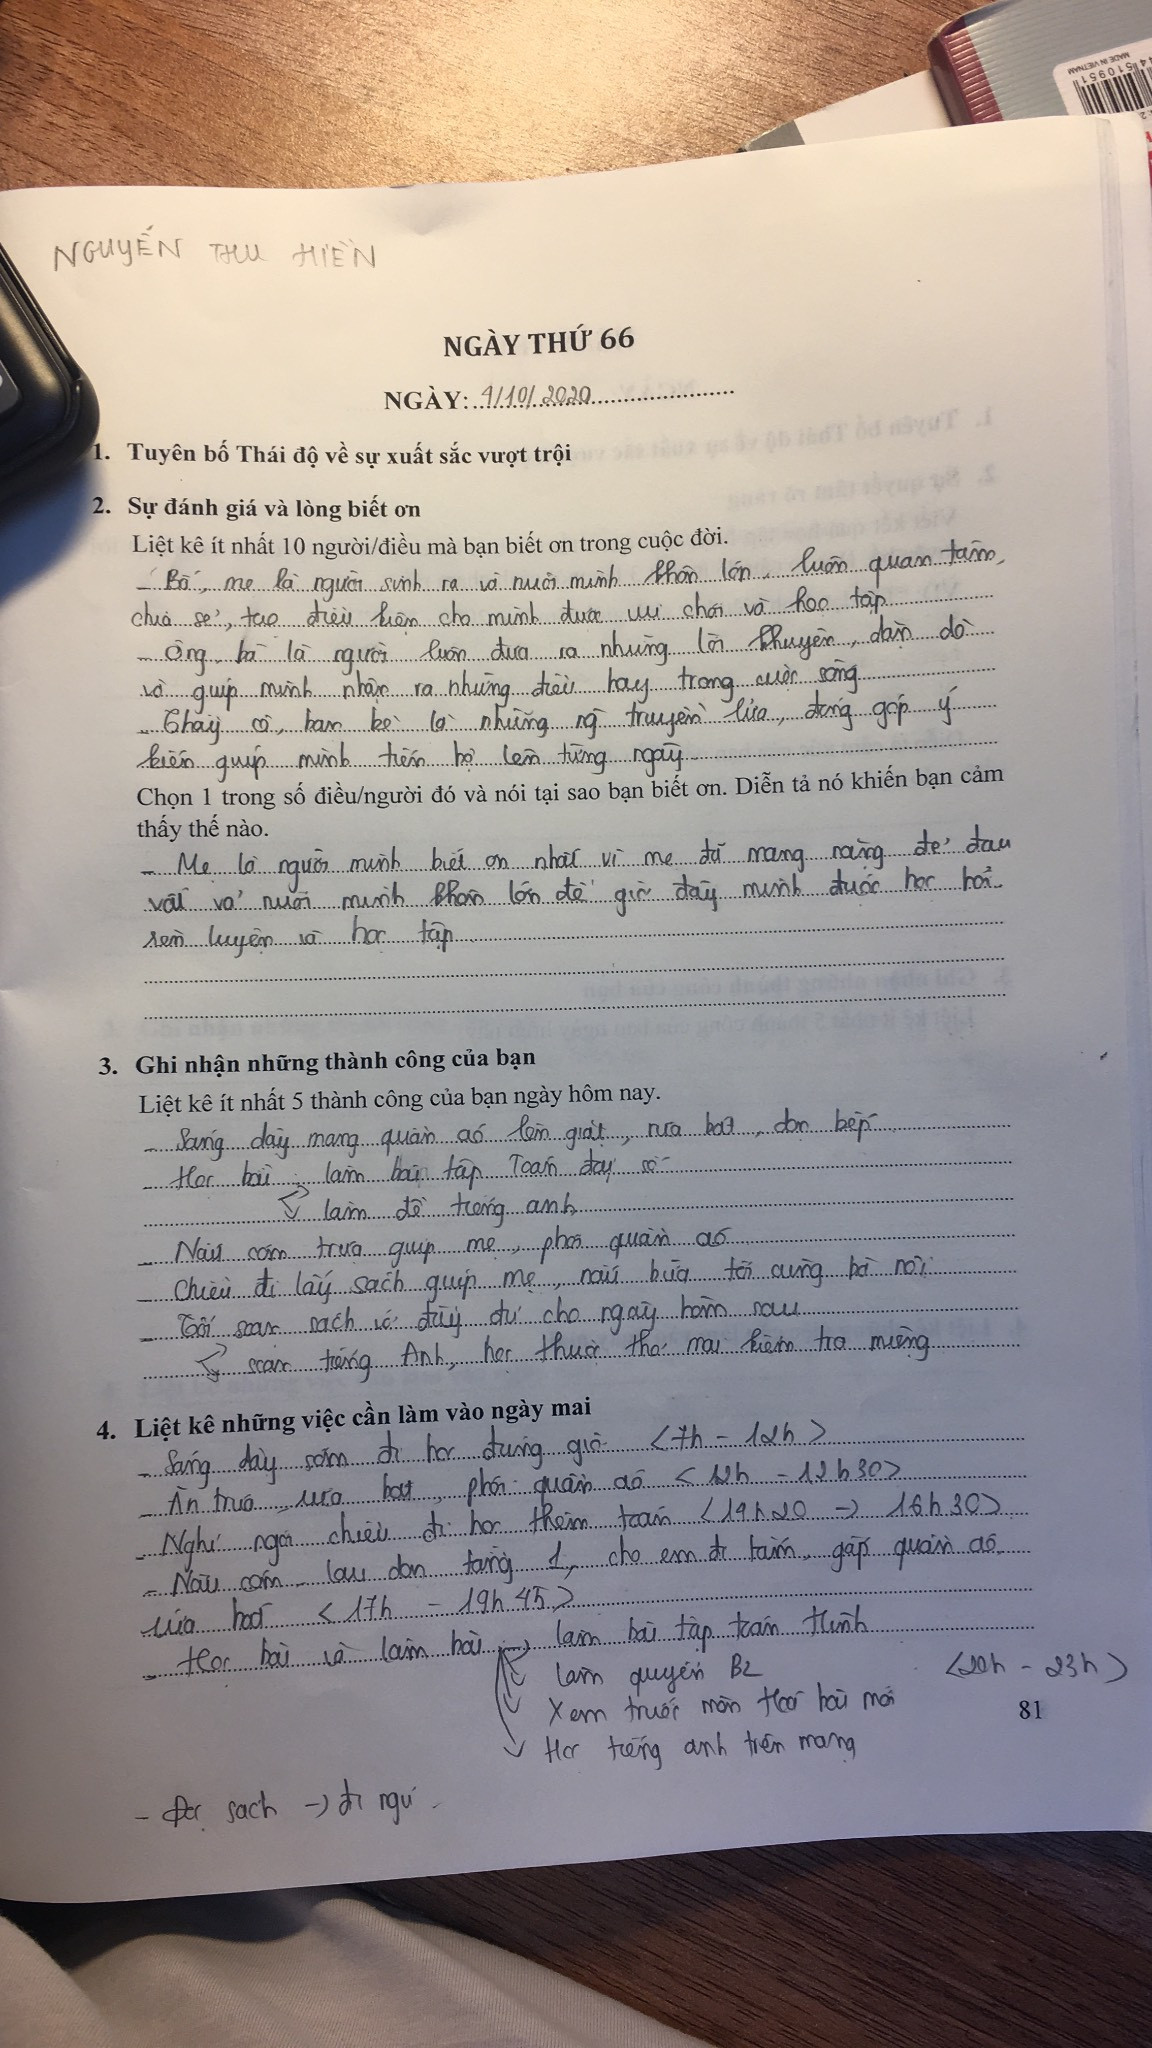 MADE IN VIETNAM
510951
NGUYỄN THU HIỀN
NGÀY THỨ 66
NGÀY: 9/10/2020
1. Tuyên bố Thái độ về sự xuất sắc vượt trội
2. Sự đánh giá và lòng biết ơn
Liệt kê ít nhất 10 người/điều mà bạn biết ơn trong cuộc đời.
- Bố, mẹ là người sinh ra và nuôi mình khôn lớn, luôn quan tâm,
chia sẻ, tạo điều kiện cho mình được vui chơi và học tập
- Ông, bà là người luôn đưa ra những lời khuyên, dặn dò
và giúp mình nhận ra những điều hay trong cuộc sống
- Thầy cô, bạn bè là những ng truyền lửa, đóng góp ý
kiến giúp mình tiến bộ lên từng ngày
Chọn 1 trong số điều/người đó và nói tại sao bạn biết ơn. Diễn tả nó khiến bạn cảm
thấy thế nào.
- Mẹ là người mình biết ơn nhất vì mẹ đã mang nặng đẻ đau
vất vả nuôi mình khôn lớn để giờ đây mình được học hỏi
rèn luyện và học tập
3. Ghi nhận những thành công của bạn
Liệt kê ít nhất 5 thành công của bạn ngày hôm nay.
- Sáng dậy mang quần áo lên giặt, rửa bát, dọn bếp
- Học bài làm bài tập Toán đại số
làm đề tiếng anh
- Nấu cơm trưa giúp mẹ, phơi quần áo
- Chiều đi lấy sách giúp mẹ, nấu bữa tối cùng bà nội
- Tối soạn sách vở đầy đủ cho ngày hôm sau
soạn tiếng Anh, học thuộc thơ mai kiểm tra miệng
4. Liệt kê những việc cần làm vào ngày mai
- Sáng dậy sớm đi học đúng giờ <7h - 12h>
- Ăn trưa, rửa bát, phơi quần áo <12h - 12h30>
- Nghỉ ngơi chiều đi học thêm toán <14h20 → 16h30>
- Nấu cơm, lau dọn tầng 1, cho em đi tắm, gấp quần áo
rửa bát <17h - 19h45>
- Học bài và làm bài → làm bài tập toán Hình
làm quyển B2 <20h - 23h>
Xem trước môn Hoá bài mới
Học tiếng anh trên mạng
81
- Đọc sách → đi ngủ.